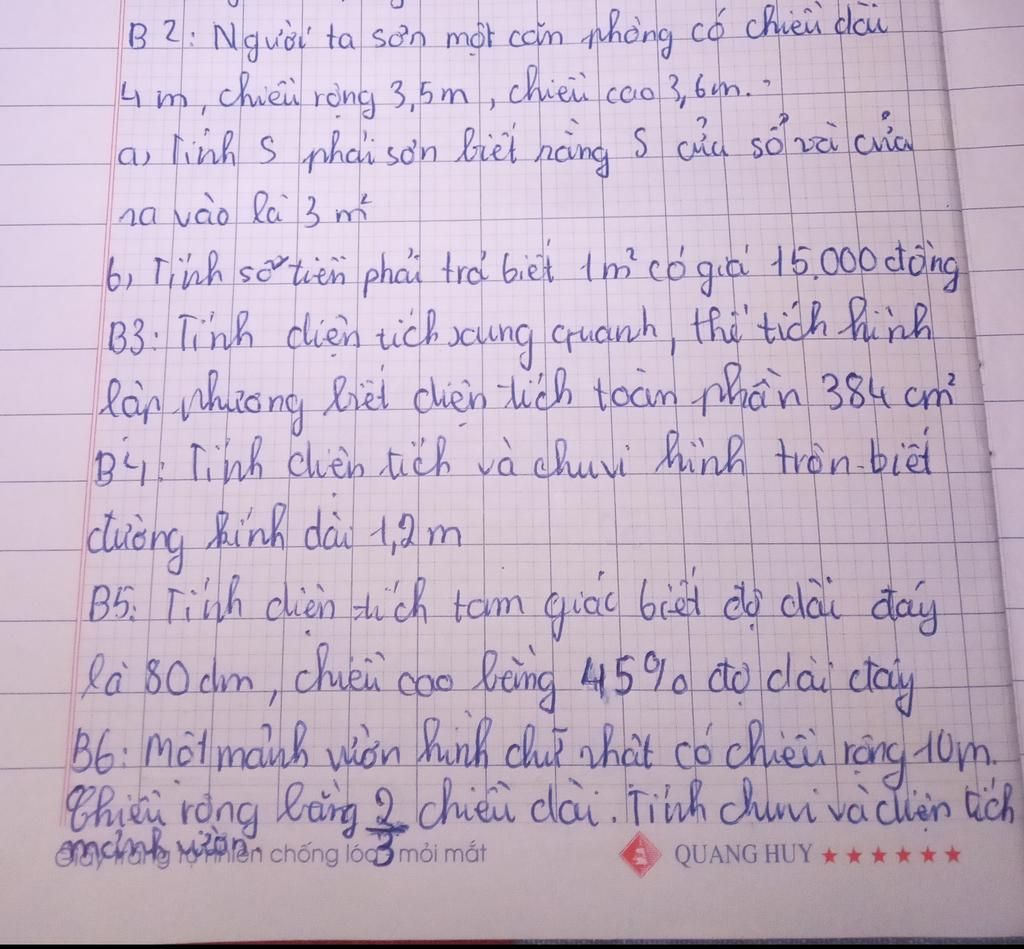 B2: Người ta sơn một căn phòng có chiều dài
4m, chiều rộng 3,5m, chiều cao 3,6m.
a, Tính S phải sơn biết rằng S cửa sổ và cửa
ra vào là 3 m²
b, Tính số tiền phải trả biết 1m² có giá 15.000 đồng
B3: Tính diện tích xung quanh, thể tích hình
lập phương biết diện tích toàn phần 384 cm²
B4: Tính diện tích và chu vi hình tròn biết
đường kính dài 1,2m
B5: Tính diện tích tam giác biết độ dài đáy
là 80dm, chiều cao bằng 45% độ dài đáy
B6: Một mảnh vườn hình chữ nhật có chiều rộng 10m.
Chiều rộng bằng 2/3 chiều dài. Tính chu vi và diện tích
mảnh vườn.
chống lóa mỏi mắt
QUANG HUY ★★★★★★